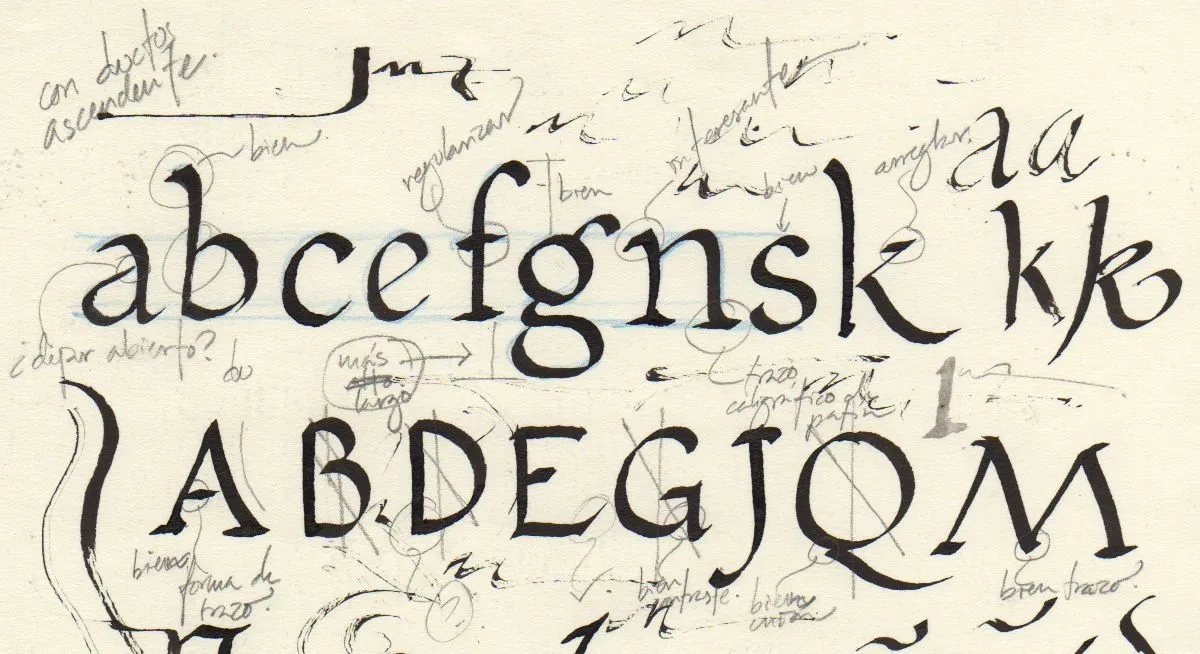 con ductos
ascendente.
bien
regularizar
bien
interesante
bien
arreglar.
a a
abcefgnsk k k
¿dejar abierto?
más
largo
trazo
caligráfico de
patín
ABDEGJQM
forma de
trazo.
?
bien
contraste.
bien trazo.